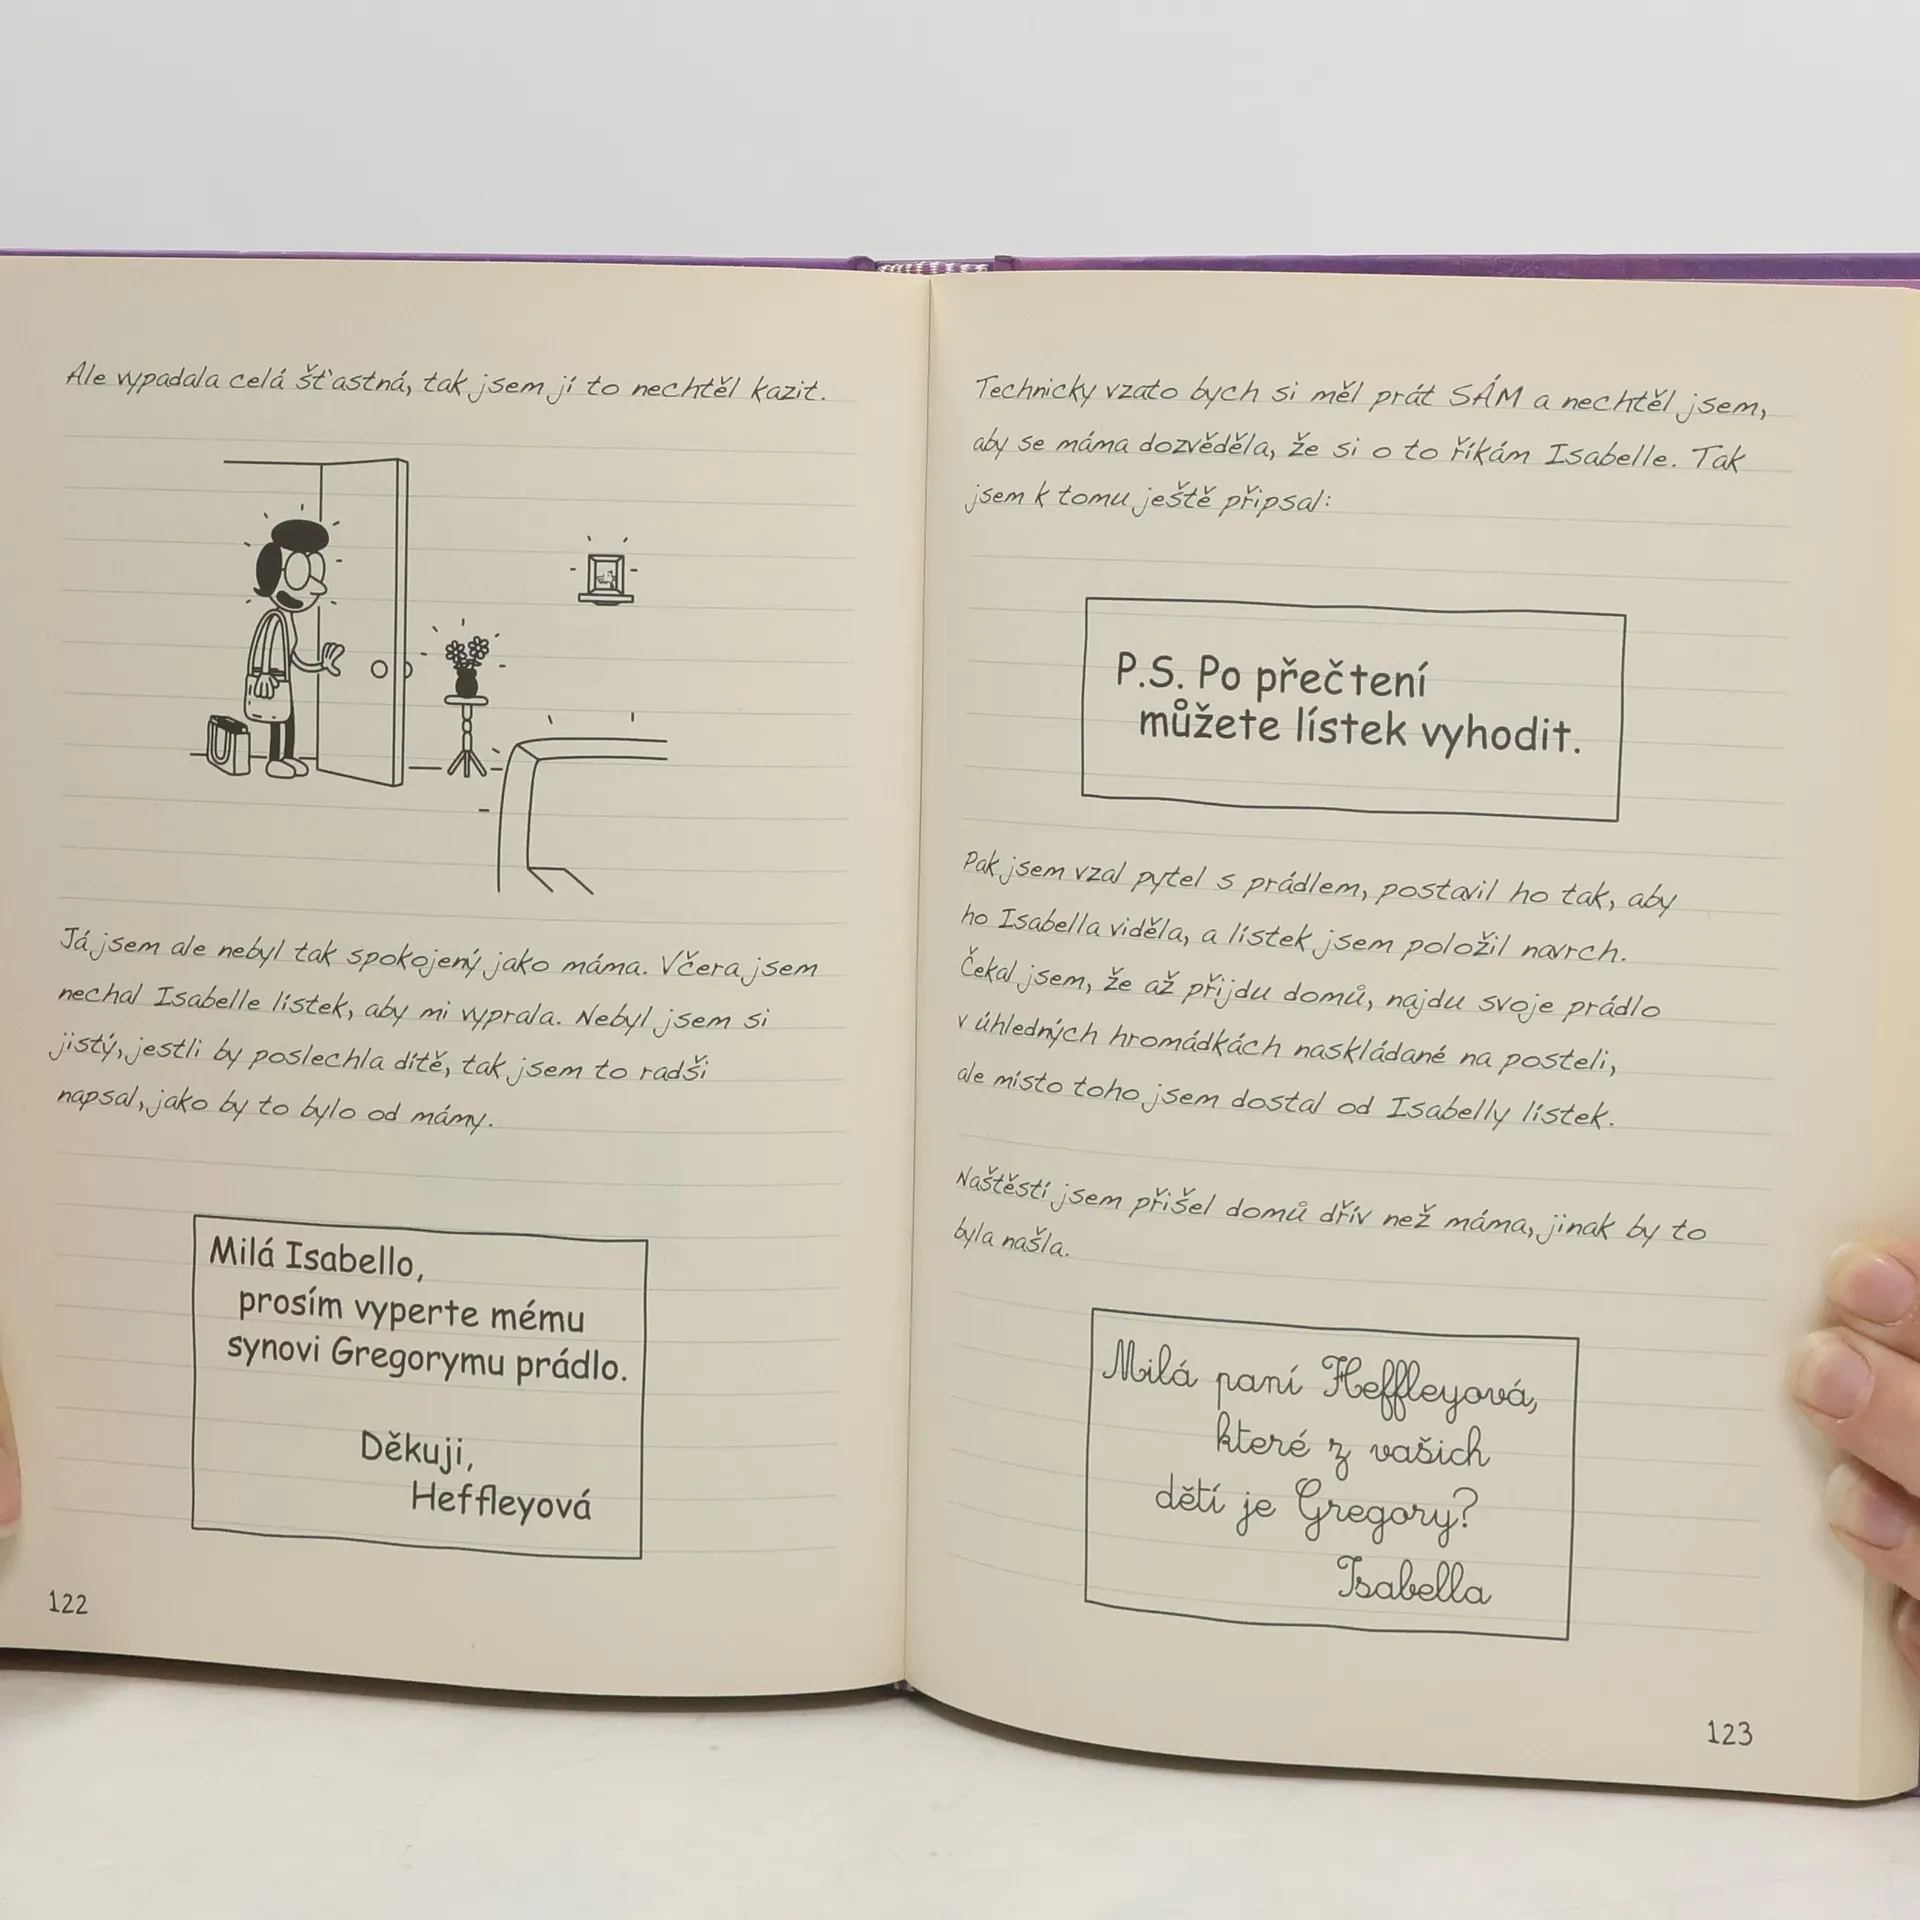 Ale vypadala celá šťastná, tak jsem jí to nechtěl kazit.
Já jsem ale nebyl tak spokojený jako máma. Včera jsem
nechal Isabelle lístek, aby mi vyprala. Nebyl jsem si
jistý, jestli by poslechla dítě, tak jsem to radši
napsal, jako by to bylo od mámy.
Milá Isabello,
prosím vyperte mému
synovi Gregorymu prádlo.
Děkuji,
Heffleyová
122
Technicky vzato bych si měl prát SÁM a nechtěl jsem,
aby se máma dozvěděla, že si o to říkám Isabelle. Tak
jsem k tomu ještě připsal:
P.S. Po přečtení
můžete lístek vyhodit.
Pak jsem vzal pytel s prádlem, postavil ho tak, aby
ho Isabella viděla, a lístek jsem položil navrch.
Čekal jsem, že až přijdu domů, najdu svoje prádlo
v úhledných hromádkách naskládané na posteli,
ale místo toho jsem dostal od Isabelly lístek.
Naštěstí jsem přišel domů dřív než máma, jinak by to
byla našla.
Milá paní Heffleyová,
které z vašich
dětí je Gregory?
Isabella
123